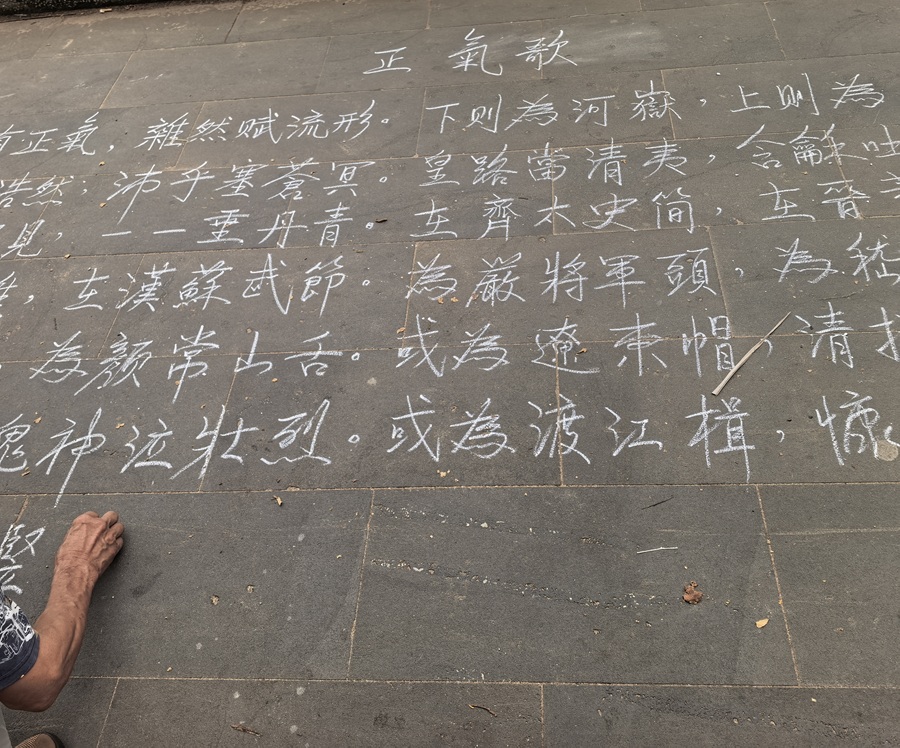 正氣歌
有正氣，雜然賦流形。下則為河嶽，上則為
浩然，沛乎塞蒼冥。皇路當清夷，含龢吐
見，一一垂丹青。在齊太史簡，在晉
在漢蘇武節。為嚴將軍頭，為嵇
為顏常山舌。或為遼東帽，清
鬼神泣壯烈。或為渡江楫，慷